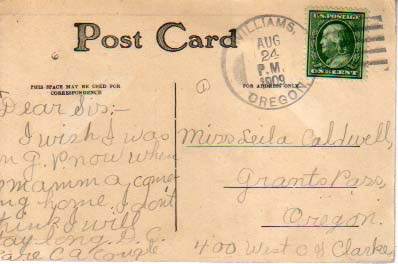 Post Card
WILLIAMS,
AUG
24
P.M.
1909
OREGON
U.S. POSTAGE
ONE CENT
THIS SPACE MAY BE USED FOR
CORRESPONDENCE
FOR ADDRESS ONLY
Dear Sis:-
I wish I was
when
mamma, come
home. I don't
think I will
long.
Miss Leila Caldwell,
Grants Pass,
Oregon.
400 West